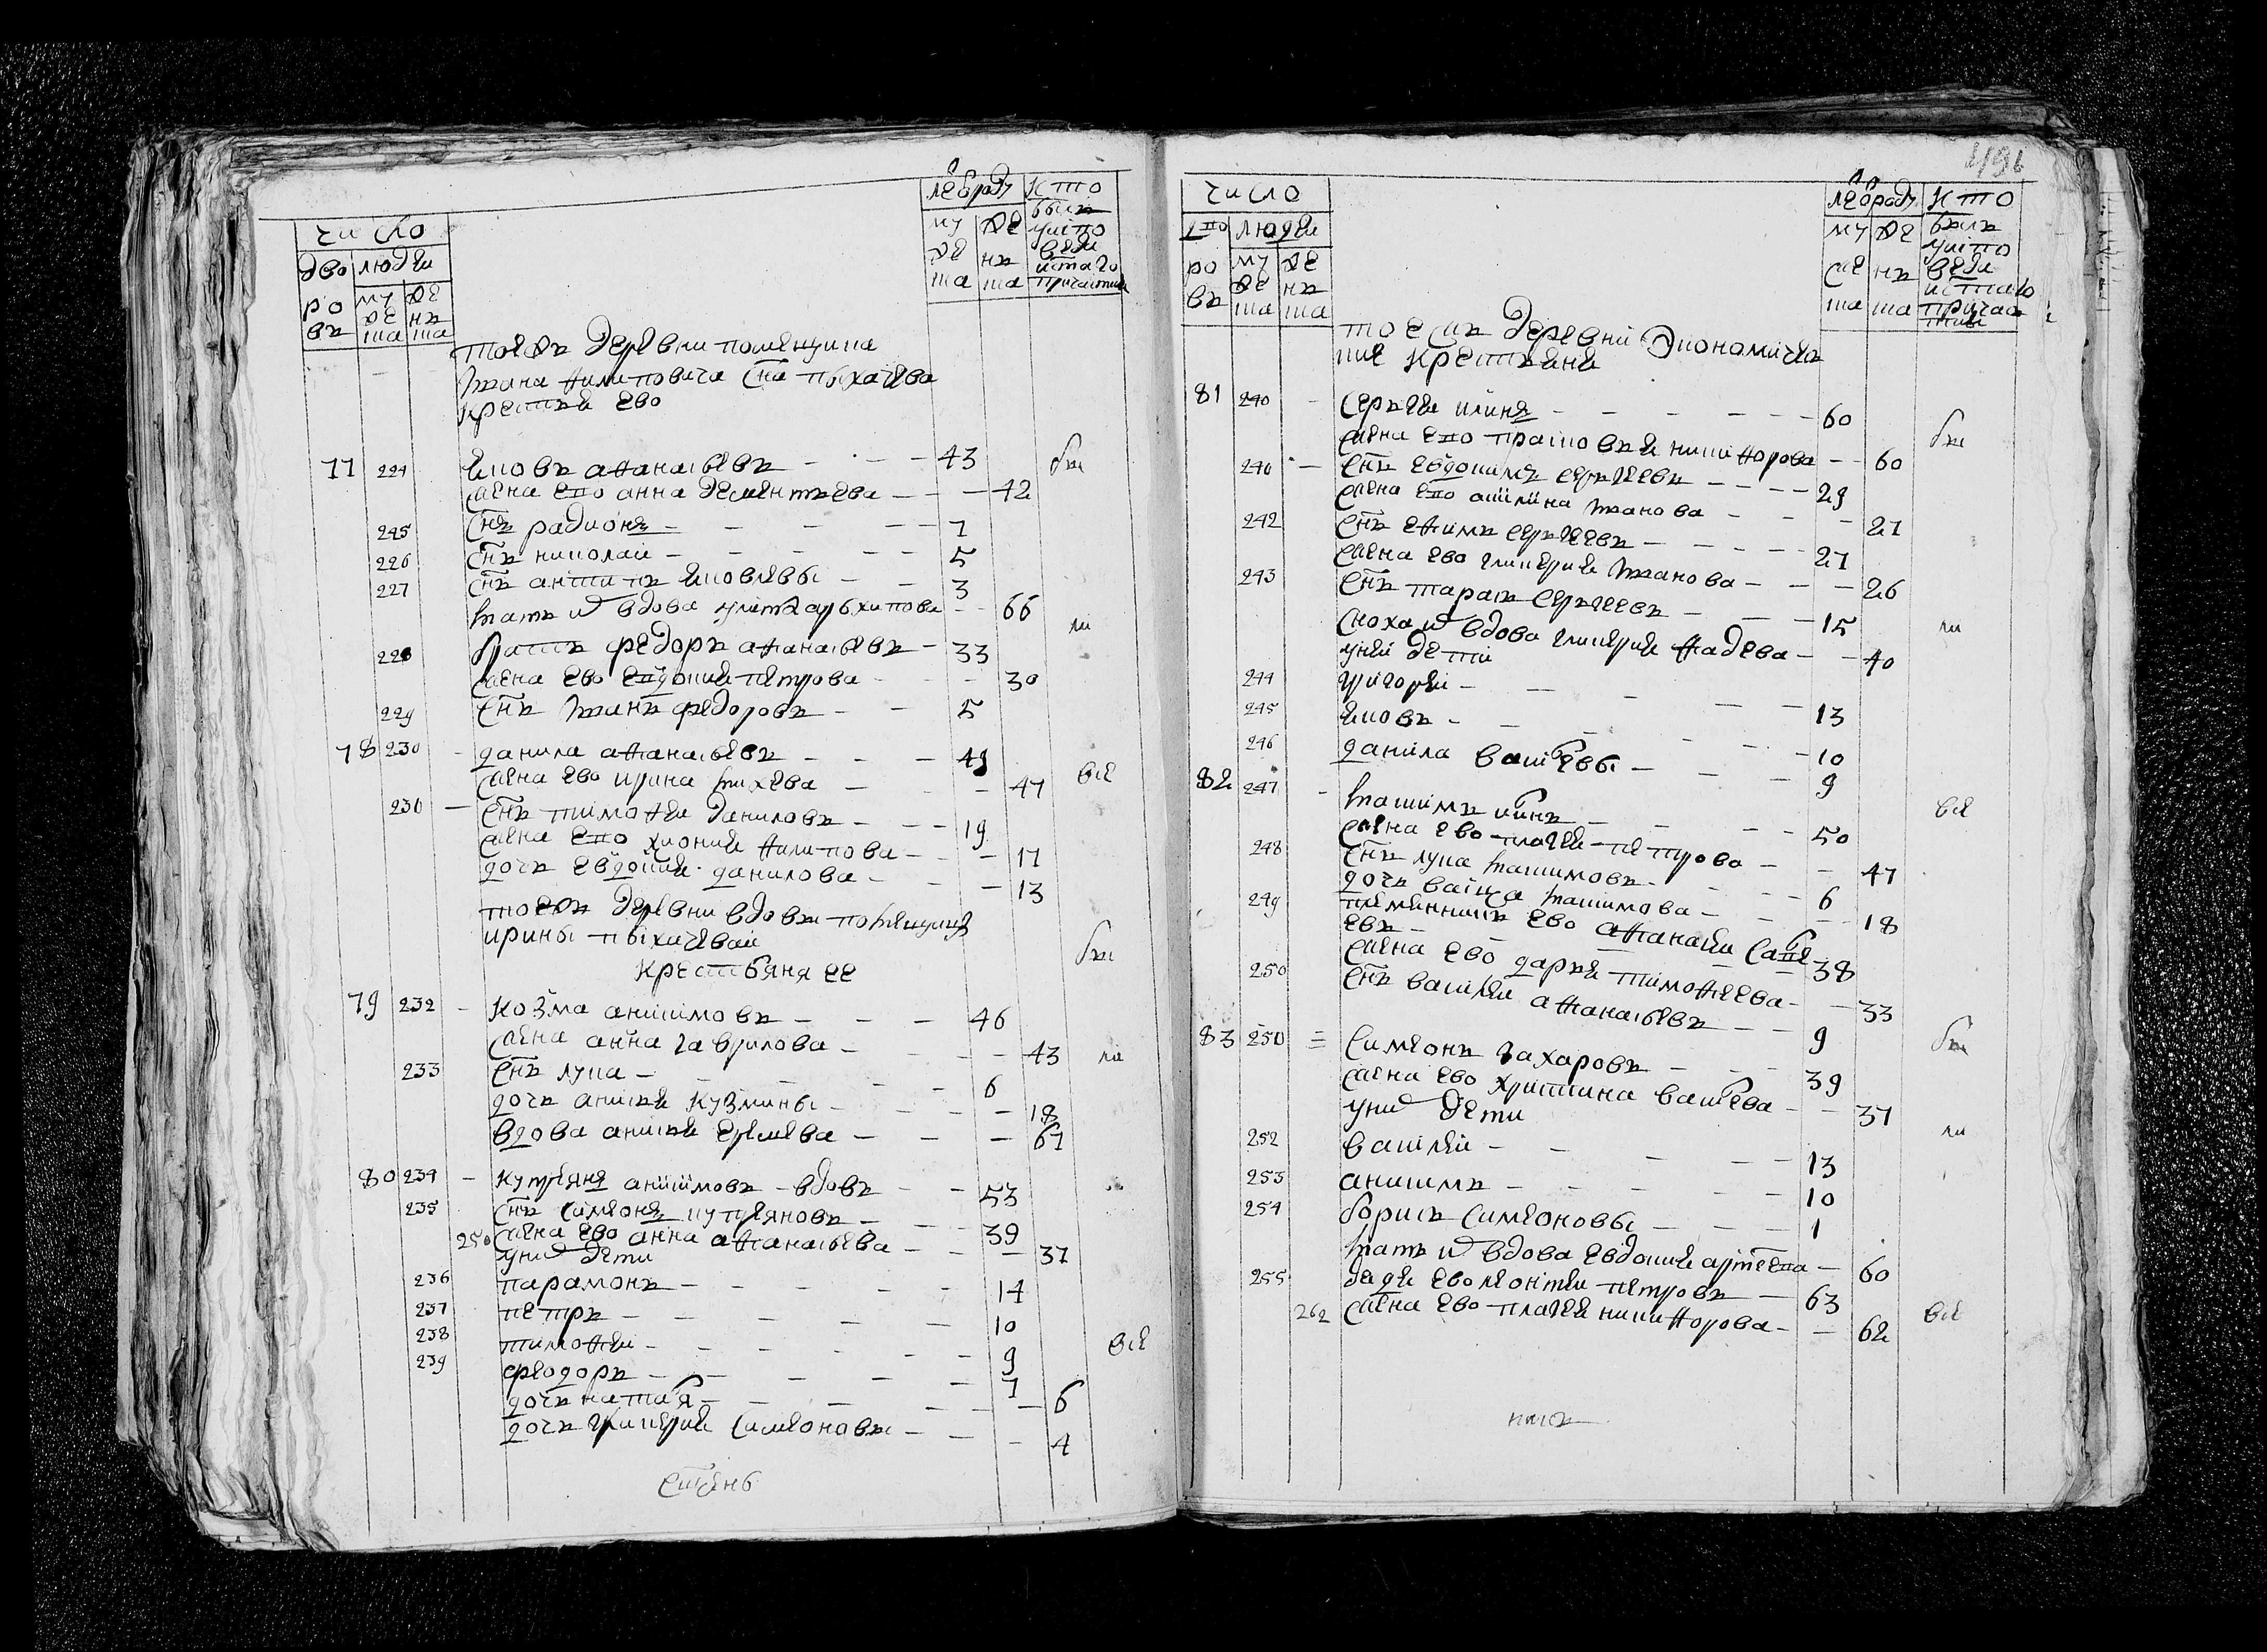 число
дво
ро
въ
людеи
му
же
ска
же
нъ
ска
лѣ ѿ роду
му
же
ска
же
нъ
ска
кто
былъ
уіспо
веди
истаго
причастия
тоежъ деревни помещика
ивана филиповича сна пыхачева
крестяня ево
77 224 яковъ афанасьевъ - - - 43
жена ево анна дементьева - - - 42
225 снъ радионъ - - - 7
226 снъ николаи - - - 5
227 снъ антипъ яковлевы - - - 3
мать ѿ вдова улита архипова - - 66
228 братъ федоръ афанасьевъ - 33
жена ево евдокия петрова - - - 30
229 снъ иванъ федоровъ - - 5
78 230 - данила афанасьевъ - - - 49
жена ево ирина михева - - 47
230 - снъ тимофеи даниловъ - - - 19
жена ево хиония филипова - - - 17
дочь евдокия данилова - - - 13
тоежъ деревни вдовы помещицы
ирины пыхачевои
крестьяня ее
79 232 - козма анисимовъ - - - 46
жена анна гаврилова - - - - 43
233 снъ лука - - - - 6
дочь анисья кузмины - - - - 18
вдова анисья еремева - - - 61
80 234 - купреянъ анисимовъ - вдовъ - - 53
235 снъ симеонъ купреяновъ - - - 39
250 жена ево анна афанасьева - - - 37
униѿ дети
236 парамонъ - - - - 14
237 петръ - - - - 10
238 тимофеи - - - - 9
239 феодоръ - - - - 7
дочь наталя - - - - 6
дочь гликерия симеоновы - - - 4
были
у
ни
все
были
ни
все
число
дво
ро
въ
людеи
му
же
ска
же
нъ
ска
лѣ ѿ роду
му
же
ска
же
нъ
ска
кто
былъ
уіспо
веди
истаго
причас
тия
тоежъ деревни экономичес
кие крестьяня
81 240 - сергеи илинъ - - - - 60
жена ево прасковья никифорова - - 60
240 - снъ евдокимъ сергеевъ - - - - 29
жена ево акилина иванова - - - 27
242 снъ ефимъ сергеевъ - - - - 27
жена ево гликерия иванова - - - 26
243 снъ тарасъ сергеевъ - - - 15
сноха ѿ вдова гликерия фадева - - 40
унеи дети
244 григореи - - - - 13
245 яковъ - - - - 10
246 данила василевы - - - 9
82 247 - максимъ илинъ - - - 50
жена ево плагея петрова - - 47
248 снъ лука максимовъ - - - 6
дочь васса максимова - - - 18
249 племянникъ ево афанасеи савел
евъ - - - - 38
жена ево дарья тимофеева - - 33
250 снъ василеи афанасьевъ - - 9
83 250 = симеонъ захаровъ - - - 39
жена ево христина василева - - 37
униѿ дети
252 василеи - - - - 13
253 анисимъ - - - - 10
254 борисъ симеоновы - - - 1
мать ѿ вдова евдокия артемева - 60
255 дядя ево леонтеи петровъ - 63
262 жена ево плагея никифорова - - 62
были
ни
все
были
ни
все